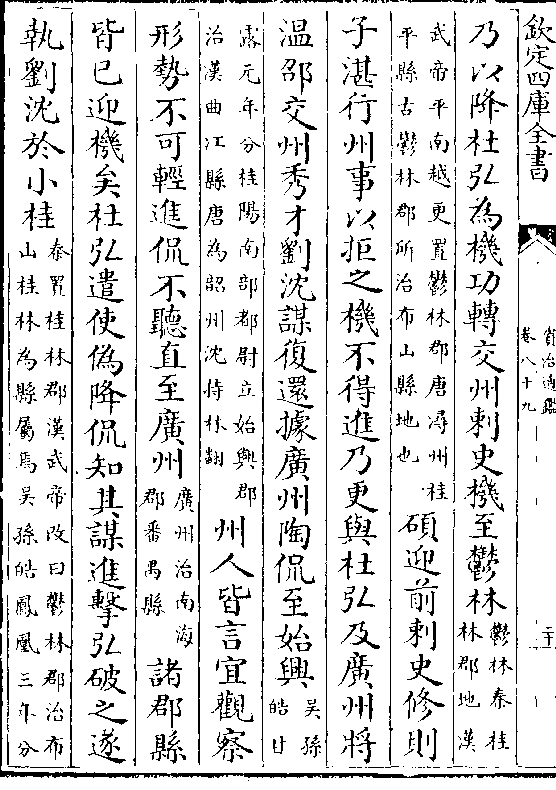 欽定四庫全書
資治通鑑
卷八十九
乃以降杜弘為機功轉交州刺史機至鬱林
鬱林秦桂
林郡地漢
武帝平南越更置鬱林郡唐潯州桂
平縣古鬱林郡所治布山縣地也
碩迎前刺史修則
子湛行州事以拒之機不得進乃更與杜弘及廣州將
温邵交州秀才劉沈謀復還據廣州陶侃至始興
吳孫
皓甘
露元年分桂陽南部都尉立始興郡
治漢曲江縣唐為韶州沈持林翻
州人皆言宜觀察
形勢不可輕進侃不聽直至廣州
廣州治南海
郡番禺縣
諸郡縣
皆已迎機矣杜弘遣使偽降侃知其謀進擊弘破之遂
執劉沈於小桂
秦置桂林郡漢武帝改曰鬱林郡治布
山桂林為縣屬焉吳孫皓鳳凰三年分